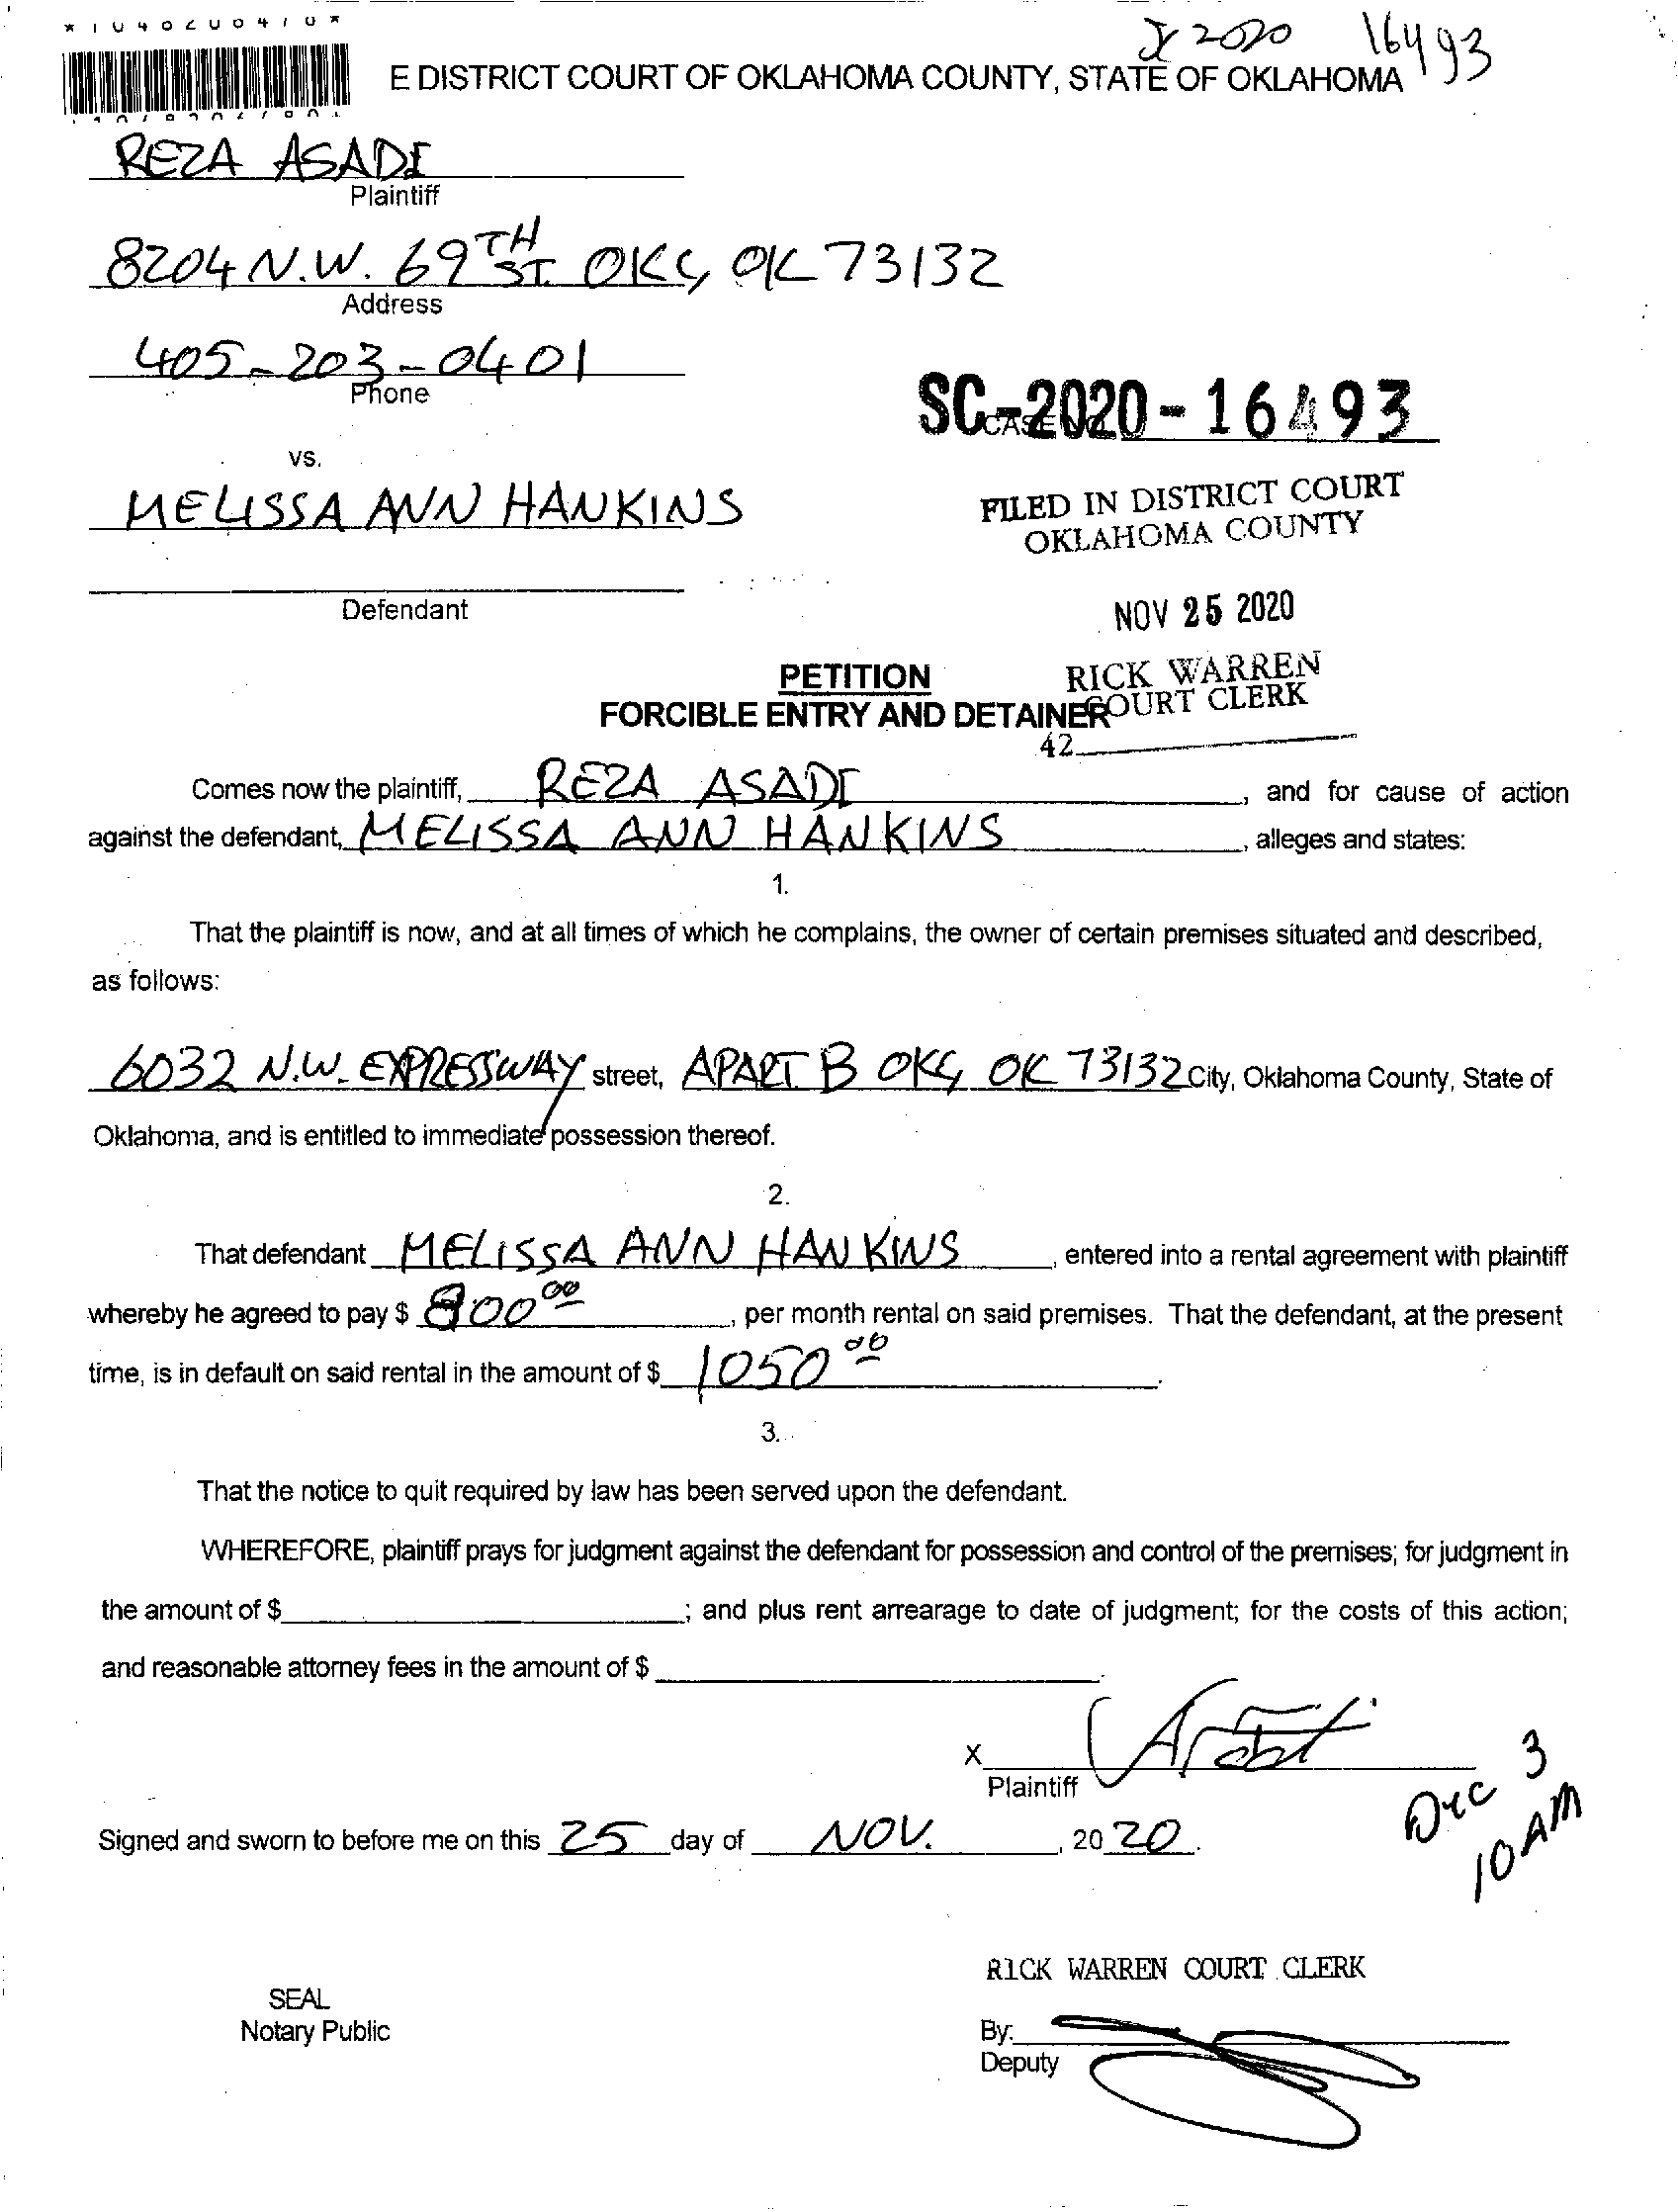 J 2020 16493
E DISTRICT COURT OF OKLAHOMA COUNTY, STATE OF OKLAHOMA
REZA ASADI
Plaintiff
8204 N.W. 69TH ST. OKC, OK 73132
Address
405-203-0401
Phone
SC-2020-16493
CASE
vs.
MELISSA ANN HANKINS
FILED IN DISTRICT COURT
OKLAHOMA COUNTY
Defendant
NOV 25 2020
PETITION
RICK WARREN
FORCIBLE ENTRY AND DETAINER
COURT CLERK
42
Comes now the plaintiff, REZA ASADI, and for cause of action
against the defendant, MELISSA ANN HANKINS, alleges and states:
1.
That the plaintiff is now, and at all times of which he complains, the owner of certain premises situated and described,
as follows:
6032 N.W. EXPRESSWAY street, APART B OKC, OK 73132 City, Oklahoma County, State of
Oklahoma, and is entitled to immediate possession thereof.
2.
That defendant MELISSA ANN HANKINS, entered into a rental agreement with plaintiff
whereby he agreed to pay $ 800 00, per month rental on said premises. That the defendant, at the present
time, is in default on said rental in the amount of $ 1050 00.
3.
That the notice to quit required by law has been served upon the defendant.
WHEREFORE, plaintiff prays for judgment against the defendant for possession and control of the premises; for judgment in
the amount of $ ; and plus rent arrearage to date of judgment; for the costs of this action;
and reasonable attorney fees in the amount of $ .
X
Plaintiff
Dec 3
10 AM
Signed and sworn to before me on this 25 day of NOV., 2020.
RICK WARREN COURT CLERK
SEAL
Notary Public
By:
Deputy